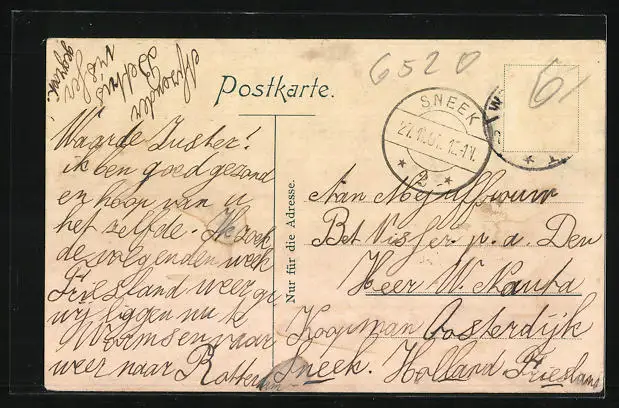 6520
6
Postkarte.
SNEEK
2
Nur für die Adresse.
Waarde Zuster!
ik ben goed gezond
en hoop van u
het zelfde. Ik zoek
de volgenden week
Friesland weer
wij liggen nu
Wormsen vaar
weer naar Rotterdam
Aan Mejuffrouw
Bet Visser p.a. Den
Heer W. Nauta
Koopman Oosterdijk
Sneek. Holland Friesland